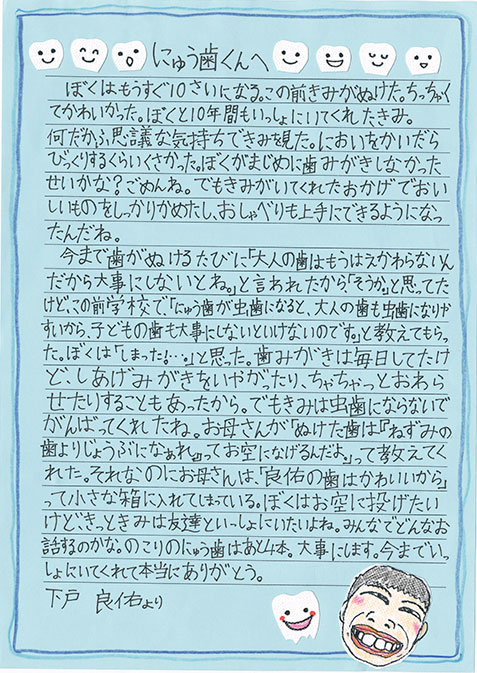 にゅう歯くんへ
ぼくはもうすぐ10さいになる。この前きみがぬけた。ちっちゃく
てかわいかった。ぼくと10年間もいっしょにいてくれたきみ。
何だかふ思議な気持ちできみを見た。においをかいだら
びっくりするくらいくさかった。ぼくがまじめに歯みがきしなかった
せいかな?ごめんね。でもきみがいてくれたおかげでおい
しいものをしっかりかめたし、おしゃべりも上手にできるようになっ
たんだね。
今まで歯がぬけるたびに「大人の歯はもうはえかわらないん
だから大事にしないとね。」と言われたから「そうか。」と思ってた
けど、この前学校で、「にゅう歯が虫歯になると、大人の歯も虫歯になりや
すいから、子どもの歯も大事にしないといけないのです。」と教えてもらっ
た。ぼくは「しまった!…。」と思った。歯みがきは毎日してたけ
ど、しあげみがきをいやがったり、ちゃちゃっとおわら
せたりすることもあったから。でもきみは虫歯にならないで
がんばってくれたね。お母さんが「ぬけた歯は『ねずみの
歯よりじょうぶになぁれ。』ってお空になげるんだよ。」って教えてく
れた。それなのにお母さんは、「良佑の歯はかわいいから」
って小さな箱に入れてしまっている。ぼくはお空に投げたい
けど、きっときみは友達といっしょにいたいよね。みんなでどんなお
話するのかな。のこりのにゅう歯はあと4本。大事にします。今までいっ
しょにいてくれて本当にありがとう。
下戸 良佑より